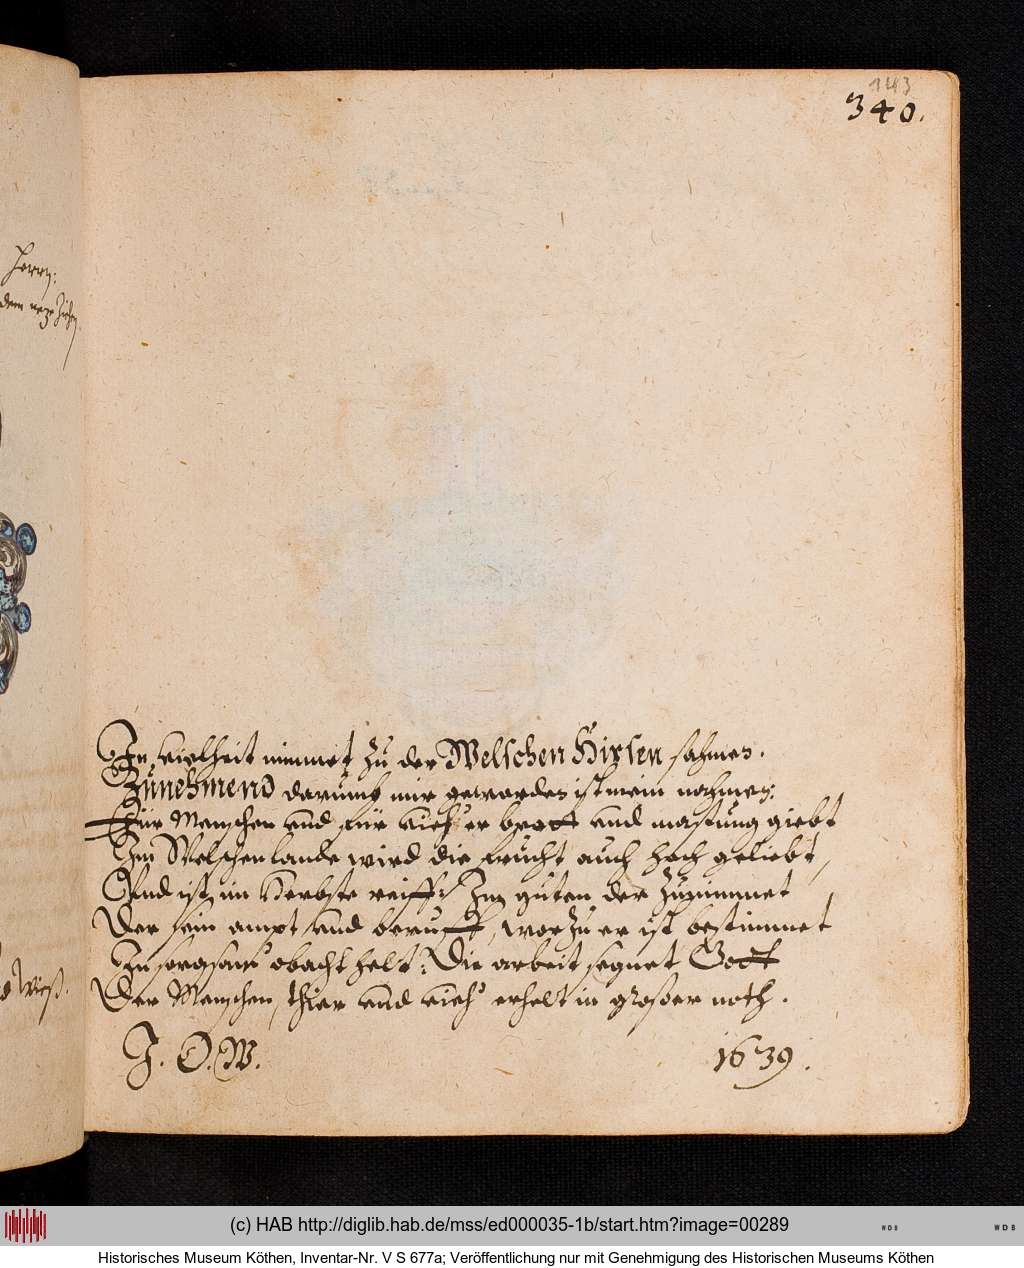 143
340.
Herrn:
dem
In vielheit nimmet zu der Welschen Hirsen sahmen.
Zunehmend darumb mir geworden ist mein nahmen:
Für Menschen und für vieh er brott und mastung giebt
Im Welschen lande wird die frucht auch hoch geliebt,
Und ist im Herbste reiff: Im guten der zunimmet
Der sein ampt und beruff, worzu er ist bestimmet
In sorgsam' obacht helt: Die arbeit segnet Gott
Der Menschen, thier und vieh' erhelt in großer noth.
J. O. W. 1639.
(c) HAB http://diglib.hab.de/mss/ed000035-1b/start.htm?image=00289
WDB WDB
Historisches Museum Köthen, Inventar-Nr. V S 677a; Veröffentlichung nur mit Genehmigung des Historischen Museums Köthen